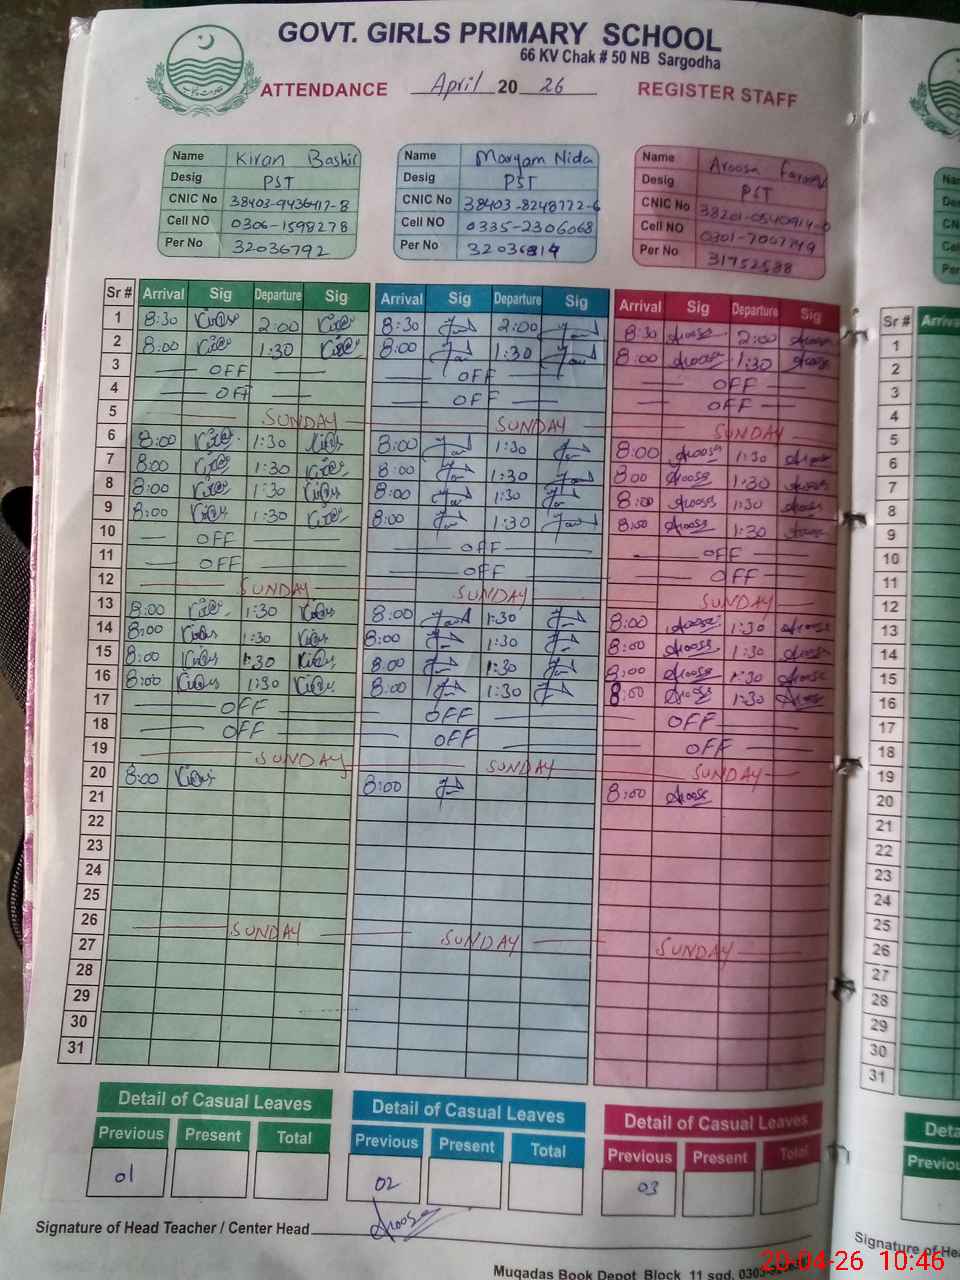 GOVT. GIRLS PRIMARY SCHOOL
66 KV Chak # 50 NB Sargodha
ATTENDANCE April 20 26 REGISTER STAFF
Name Kiran Bashir
Desig PST
CNIC No 38403-9436417-8
Cell NO 0306-1598278
Per No 32036792
Name Maryam Nida
Desig PST
CNIC No 38403-8248772-6
Cell NO 0335-2306068
Per No 32036814
Name Aroosa Farooq
Desig PST
CNIC No 38201-0540914-0
Cell NO 0301-7007749
Per No 31752588
Sr # Arrival Sig Departure Sig Arrival Sig Departure Sig Arrival Sig Departure Sig
1 8:30 2:00 8:30 2:00 8:30 Aroosa 2:00 Aroosa
2 8:00 1:30 8:00 1:30 8:00 Aroosa 1:30 Aroosa
3 OFF OFF OFF
4 OFF OFF OFF
5 SUNDAY SUNDAY SUNDAY
6 8:00 1:30 8:00 1:30 8:00 Aroosa 1:30 Aroosa
7 8:00 1:30 8:00 1:30 8:00 Aroosa 1:30 Aroosa
8 8:00 1:30 8:00 1:30 8:00 Aroosa 1:30 Aroosa
9 8:00 1:30 8:00 1:30 8:00 Aroosa 1:30 Aroosa
10 OFF OFF OFF
11 OFF OFF OFF
12 SUNDAY SUNDAY SUNDAY
13 8:00 1:30 8:00 1:30 8:00 Aroosa 1:30 Aroosa
14 8:00 1:30 8:00 1:30 8:00 Aroosa 1:30 Aroosa
15 8:00 1:30 8:00 1:30 8:00 Aroosa 1:30 Aroosa
16 8:00 1:30 8:00 1:30 8:00 Aroosa 1:30 Aroosa
17 OFF OFF OFF
18 OFF OFF OFF
19 SUNDAY SUNDAY SUNDAY
20 8:00 8:00 8:00 Aroosa
21
22
23
24
25
26 SUNDAY SUNDAY SUNDAY
27
28
29
30
31
Detail of Casual Leaves Detail of Casual Leaves Detail of Casual Leaves
Previous Present Total Previous Present Total Previous Present Total
01 02 03
Signature of Head Teacher / Center Head Aroosa
Muqadas Book Depot Block 11 sgd.
Sr #
1
2
3
4
5
6
7
8
9
10
11
12
13
14
15
16
17
18
19
20
21
22
23
24
25
26
27
28
29
30
31
20-04-26 10:46